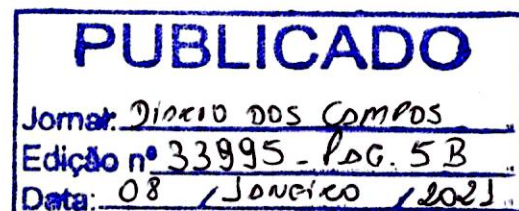 PUBLICADO
Jornal: DIÁRIO DOS CAMPOS
Edição nº 33995 - PAG. 5 B
Data: 08 / JANEIRO / 2021